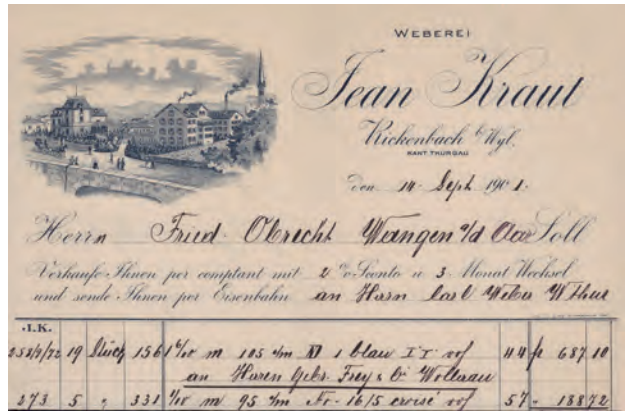 WEBEREI
Jean Kraut
Rickenbach b/Wyl.
KANT. THURGAU
den 14. Sept 1901.
Herrn Fried. Obrecht Wangen a/d Aar Soll
Verkaufe Ihnen per comptant mit 2 % Sconto u 3 Monat Wechsel
und sende Ihnen per Eisenbahn an Herrn Carl Weber W'thur
J.K.
19 Stück 1561 m 105 c/m 1 blau 44 fr 687 10
an Herren Gebr. Frey & Co Wollerau
273 5 " 331 m 95 c/m No 16/5 croisé 57 " 188 72